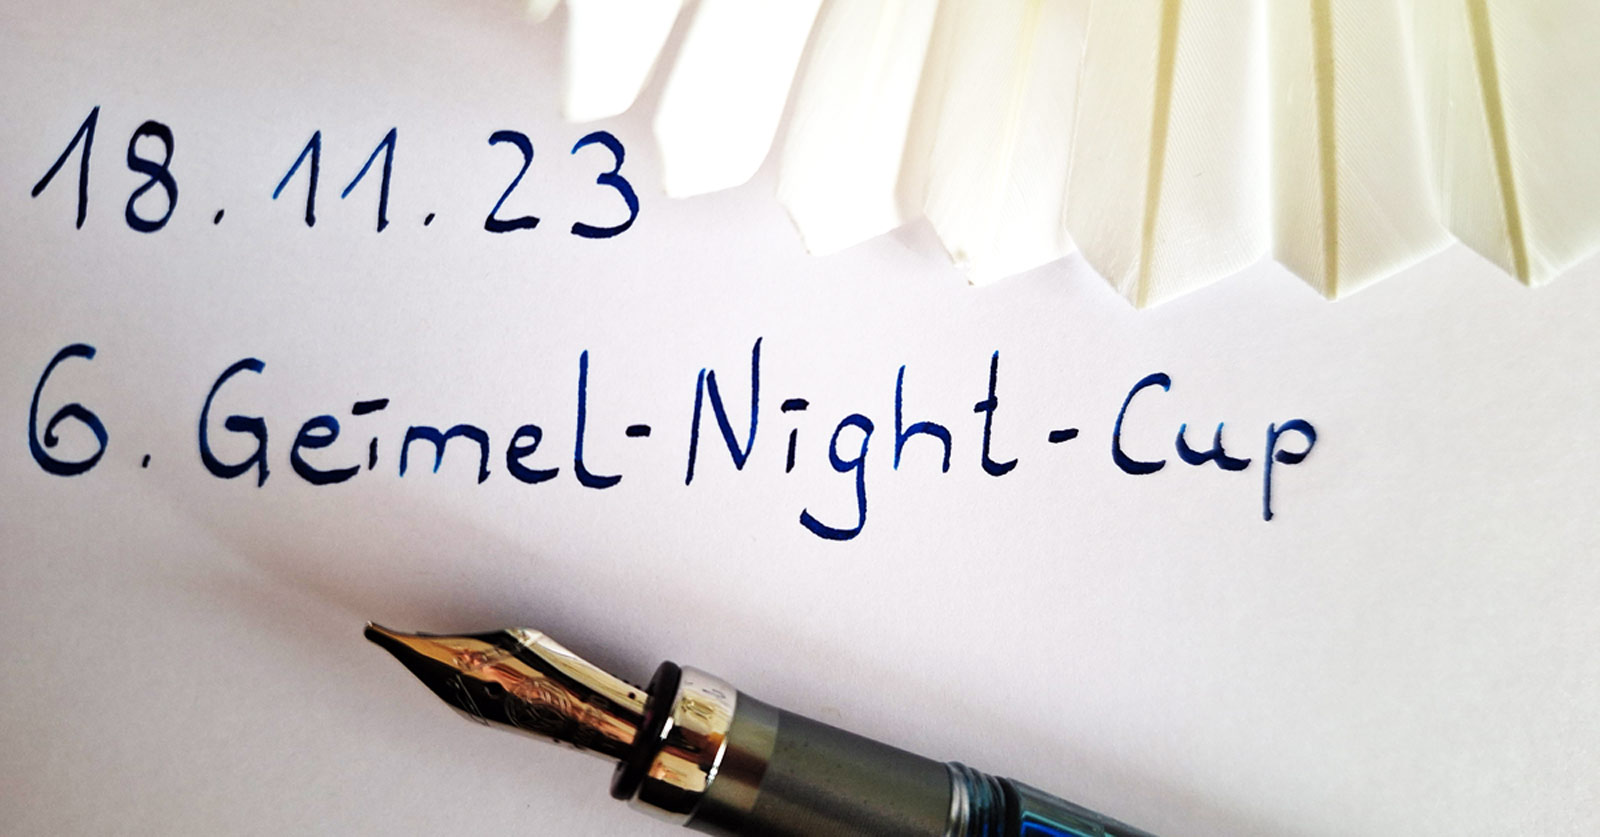 18.11.23
6. Geimel-Night-Cup